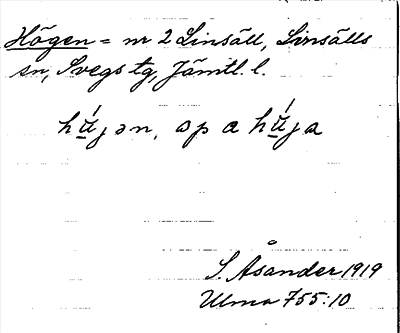 Högen = nr 2 Linsäll, Linsälls
sn, Svegs tg, Jämtl. l.
hú̲jən, sp a hú̲ja
S. Åsander 1919
Ulma 755:10